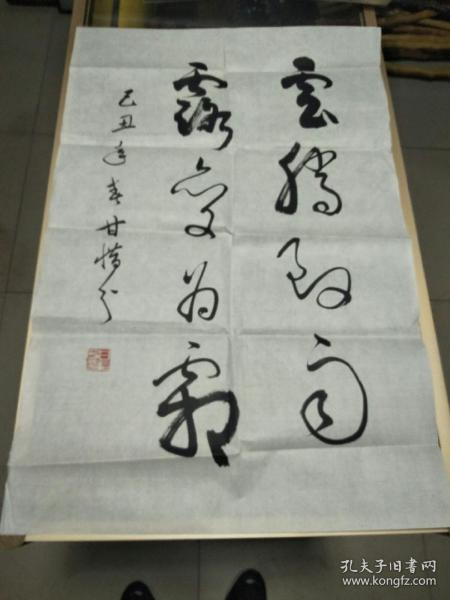 雲騰致雨
露變为霜
己丑年春甘惜分
孔夫子旧书网
www.kongfz.com